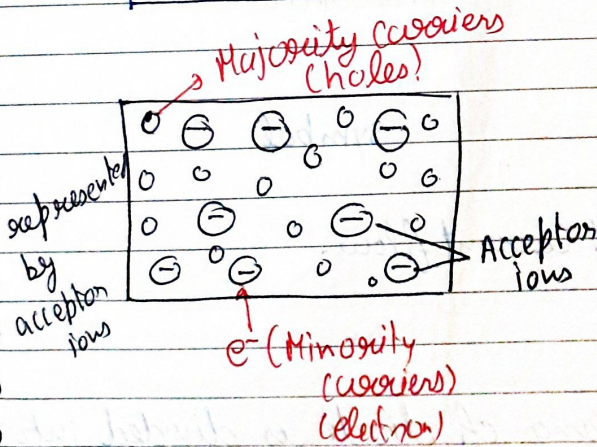 Majority Carriers
(holes)
represented
by
acceptor
ions
Acceptor
ions
e⁻ (Minority
Carriers)
(electron)